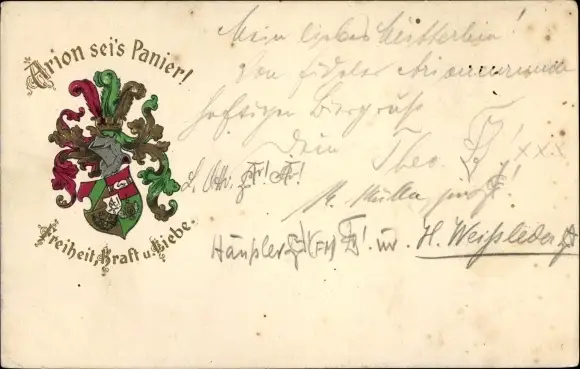 Arion sei's Panier!
Freiheit, Kraft u. Liebe.
Mein liebes Mütterlein!
Von fideler Arionenrunde
heftigen Biergruß
Dein Theo. xxx
L. Otto
M. Müller,
Häusler (FM) ur. H. Weißleder